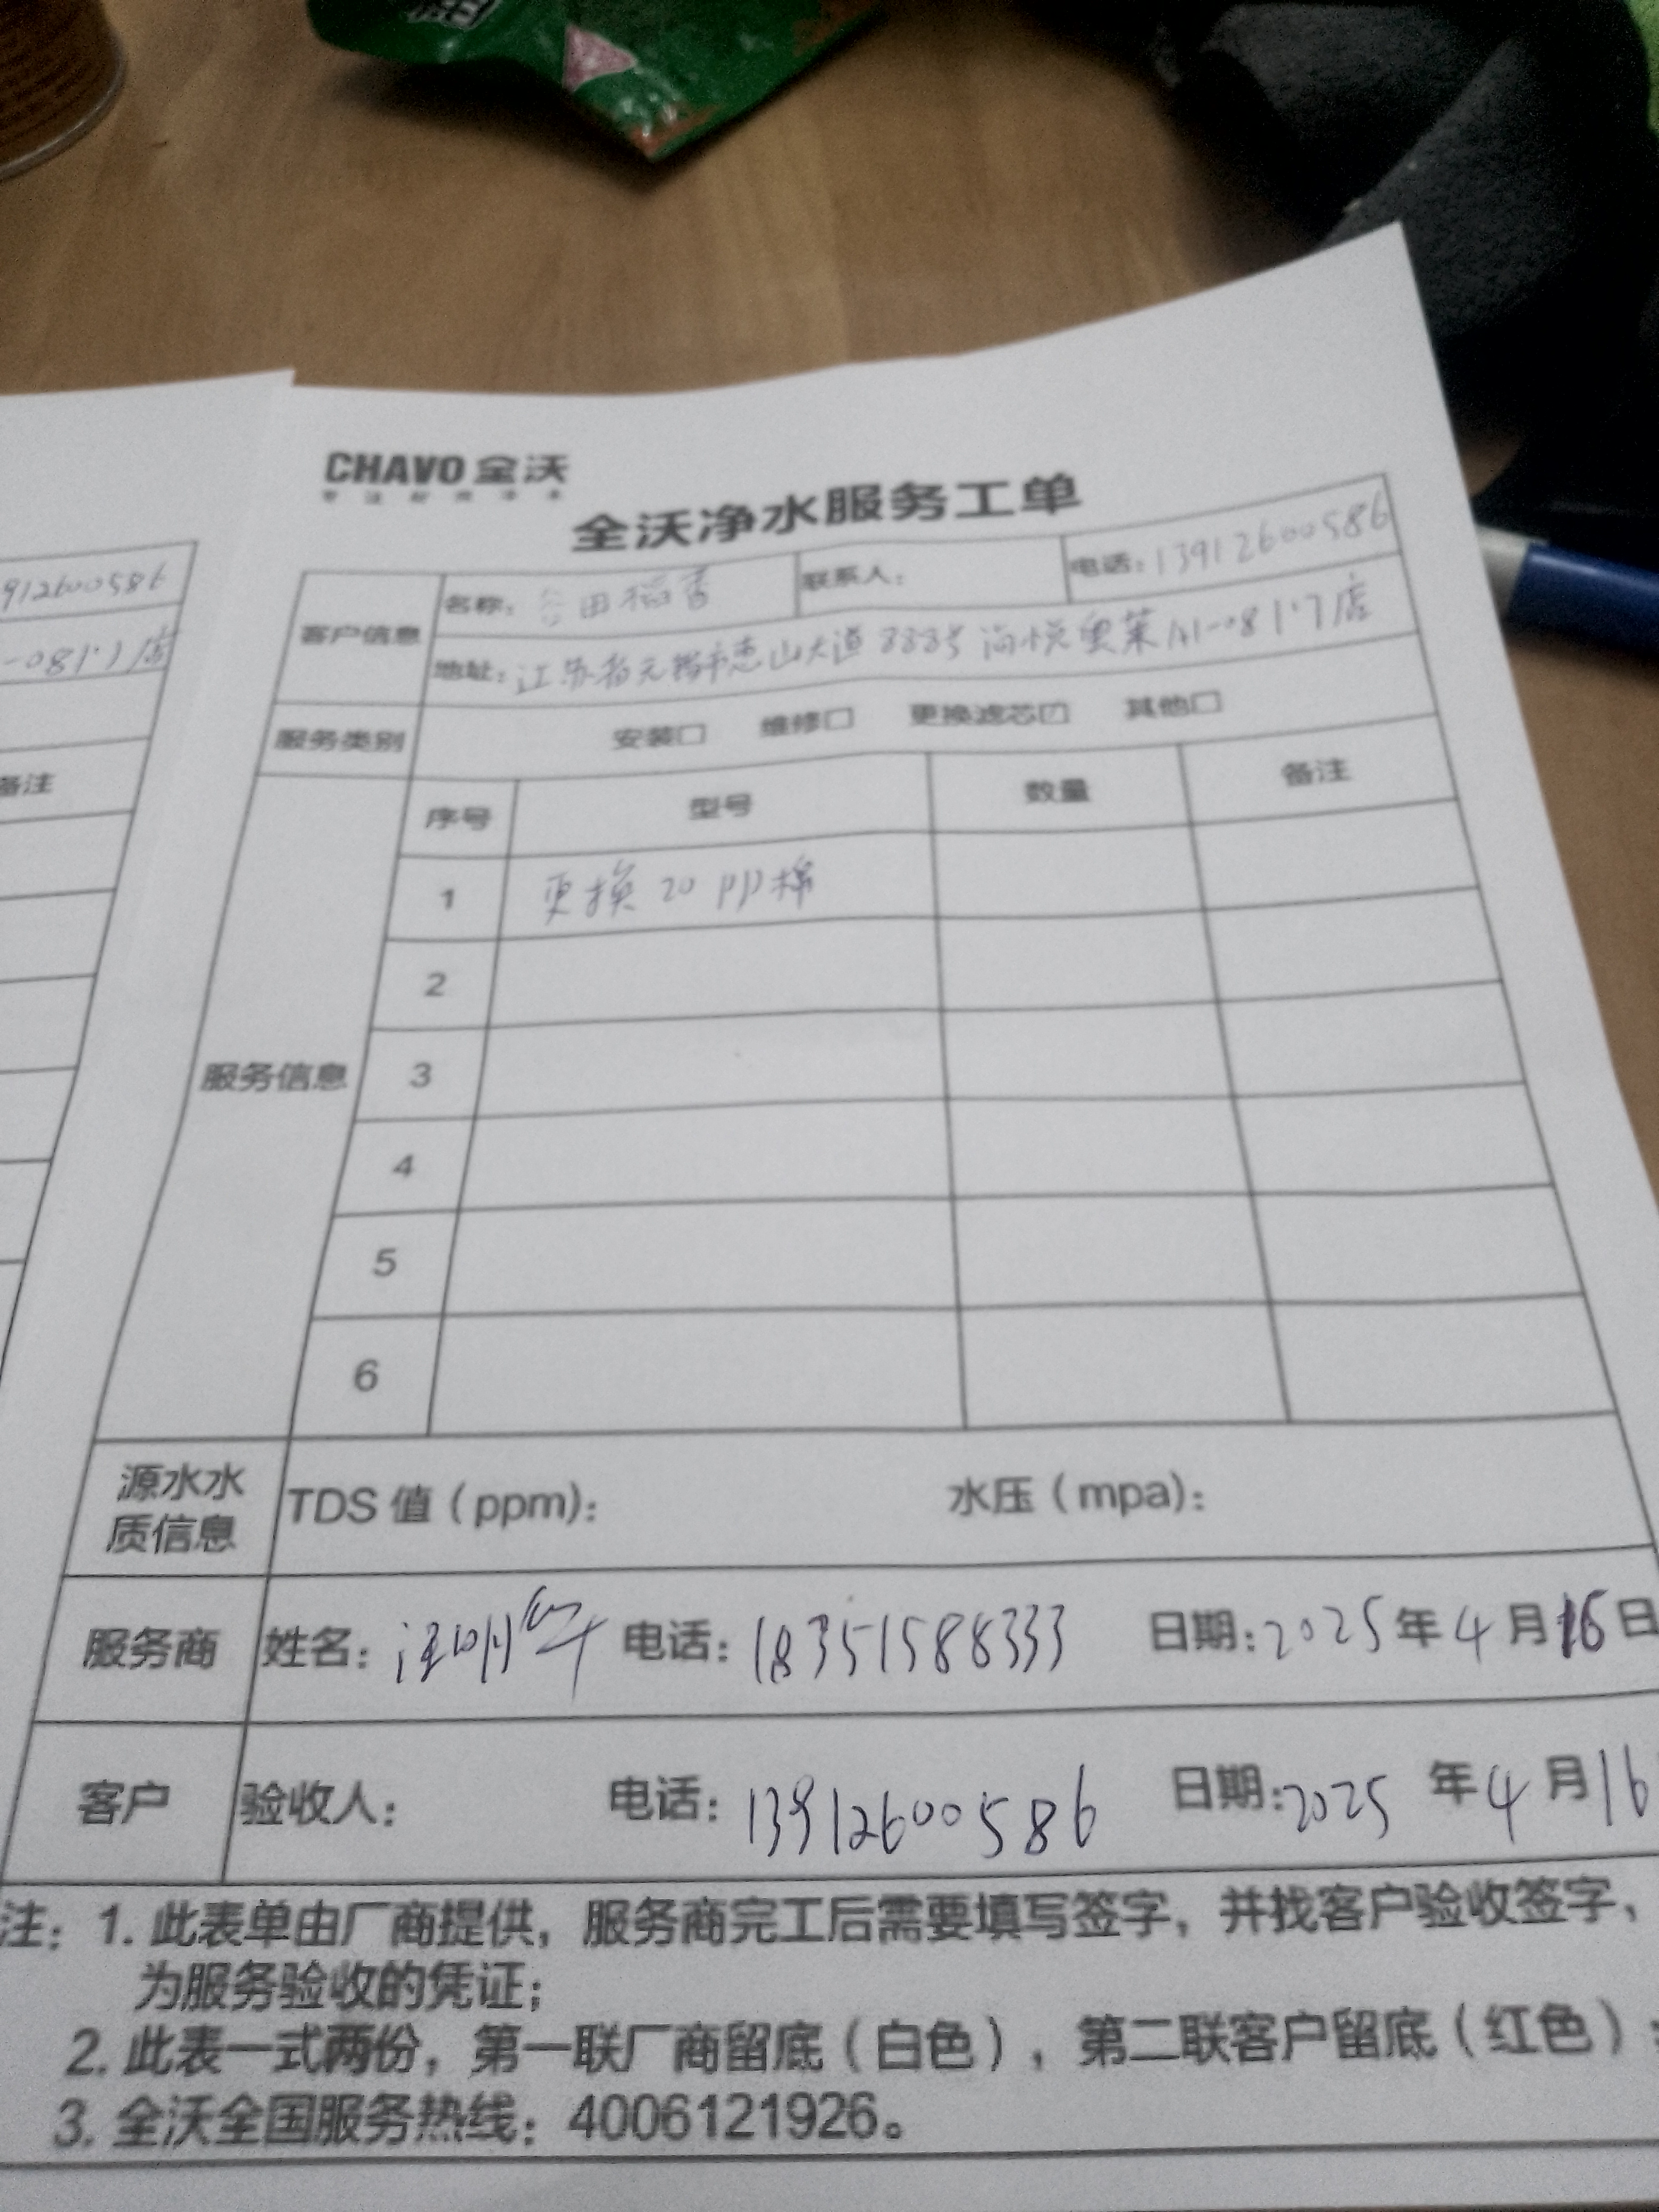 CHAVO 全沃
全沃净水服务工单
客户信息 名称： 田稻香 联系人： 电话：13912600586
地址：江苏省无锡市惠山大道888号尚悦奥莱A1-08 1·7店
服务类别 安装□ 维修□ 更换滤芯☑ 其他□
服务信息 序号 型号 数量 备注
1 更换 20 PP棉
2
3
4
5
6
源水水质信息 TDS 值（ppm）： 水压（mpa）：
服务商 姓名： 电话：18351588333 日期：2025年4月16日
客户 验收人： 电话：13912600586 日期：2025 年4月16
注：1. 此表单由厂商提供，服务商完工后需要填写签字，并找客户验收签字，
为服务验收的凭证；
2. 此表一式两份，第一联厂商留底（白色），第二联客户留底（红色）
3. 全沃全国服务热线：4006121926。
912600586
-08 1·7店
备注